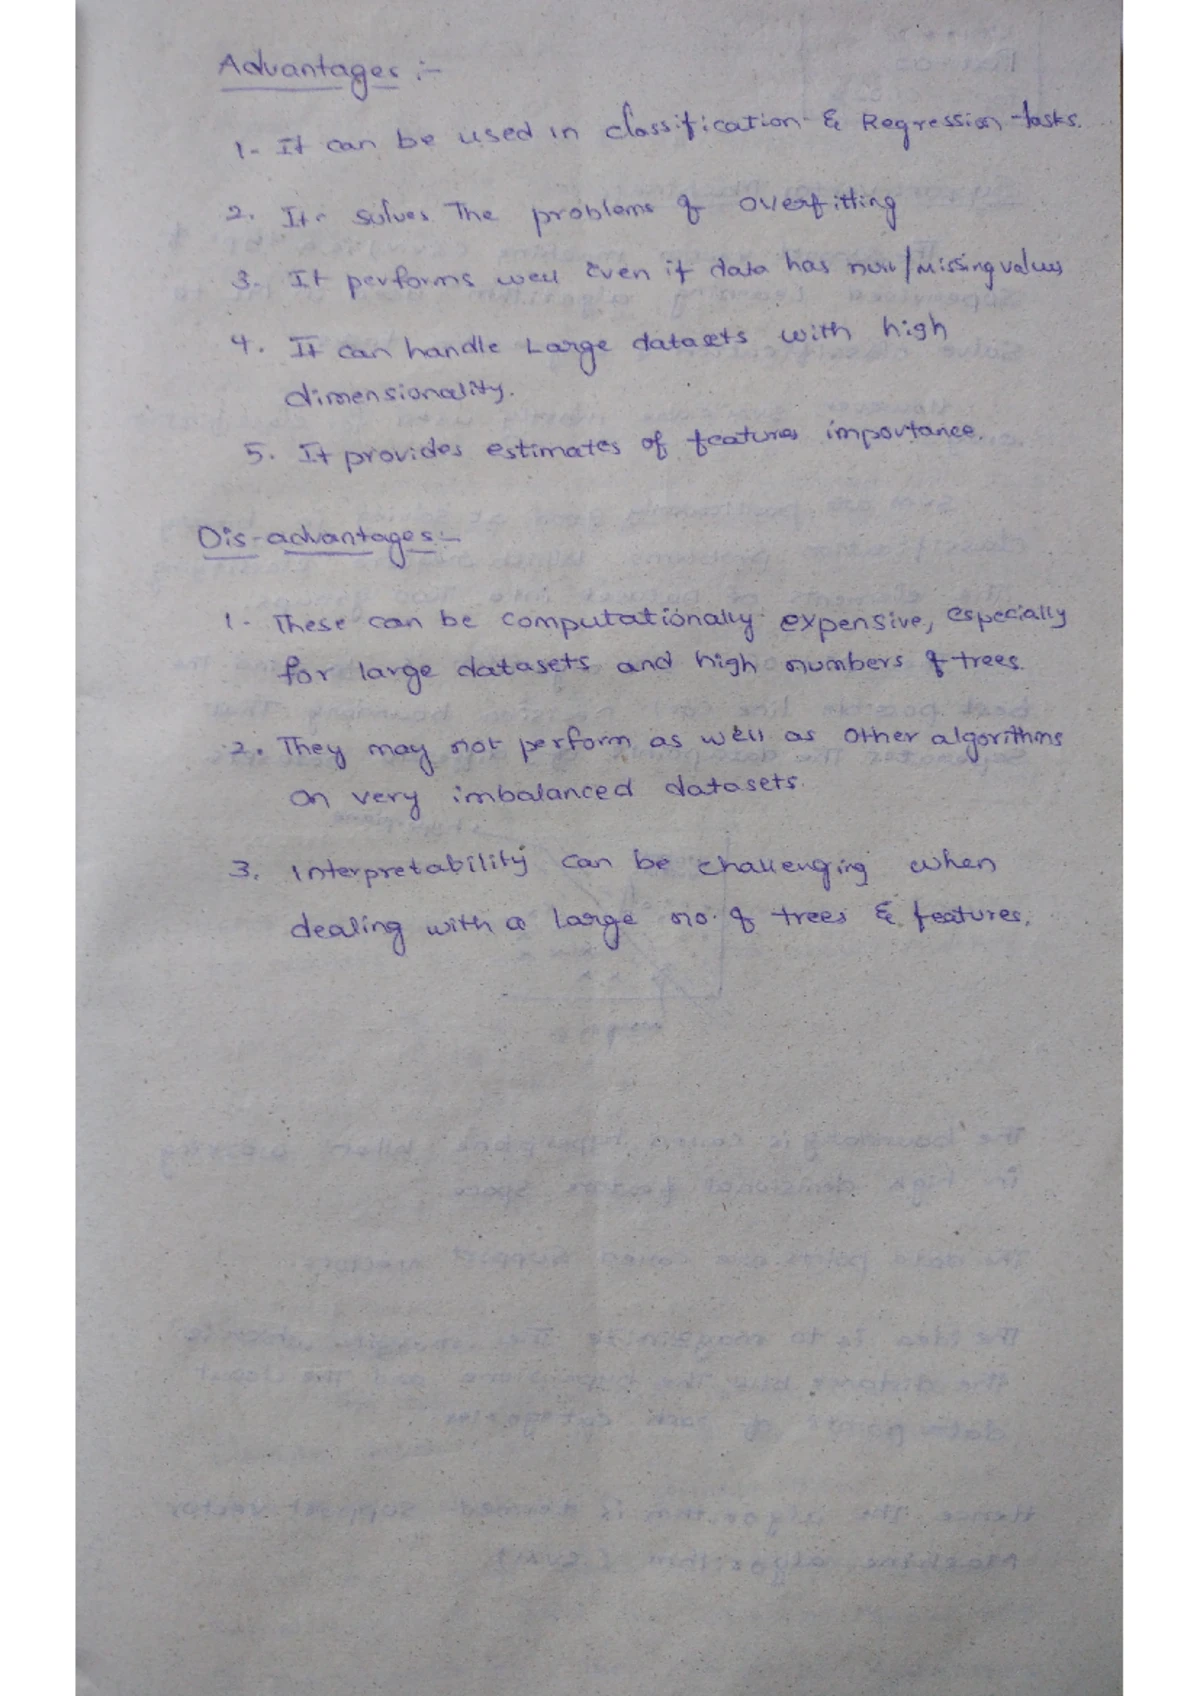 Advantages :-
1- It can be used in classification & Regression tasks.
2. It solves The problems of overfitting
3- It performs well even if data has null/Missing values
4. It can handle Large datasets with high
dimensionality.
5. It provides estimates of features importance.
Dis-advantages:-
1- These can be computationally expensive, especially
for large datasets and high numbers of trees.
2. They may not perform as well as other algorithms
on very imbalanced datasets.
3. Interpretability can be challenging when
dealing with a large no. of trees & features.